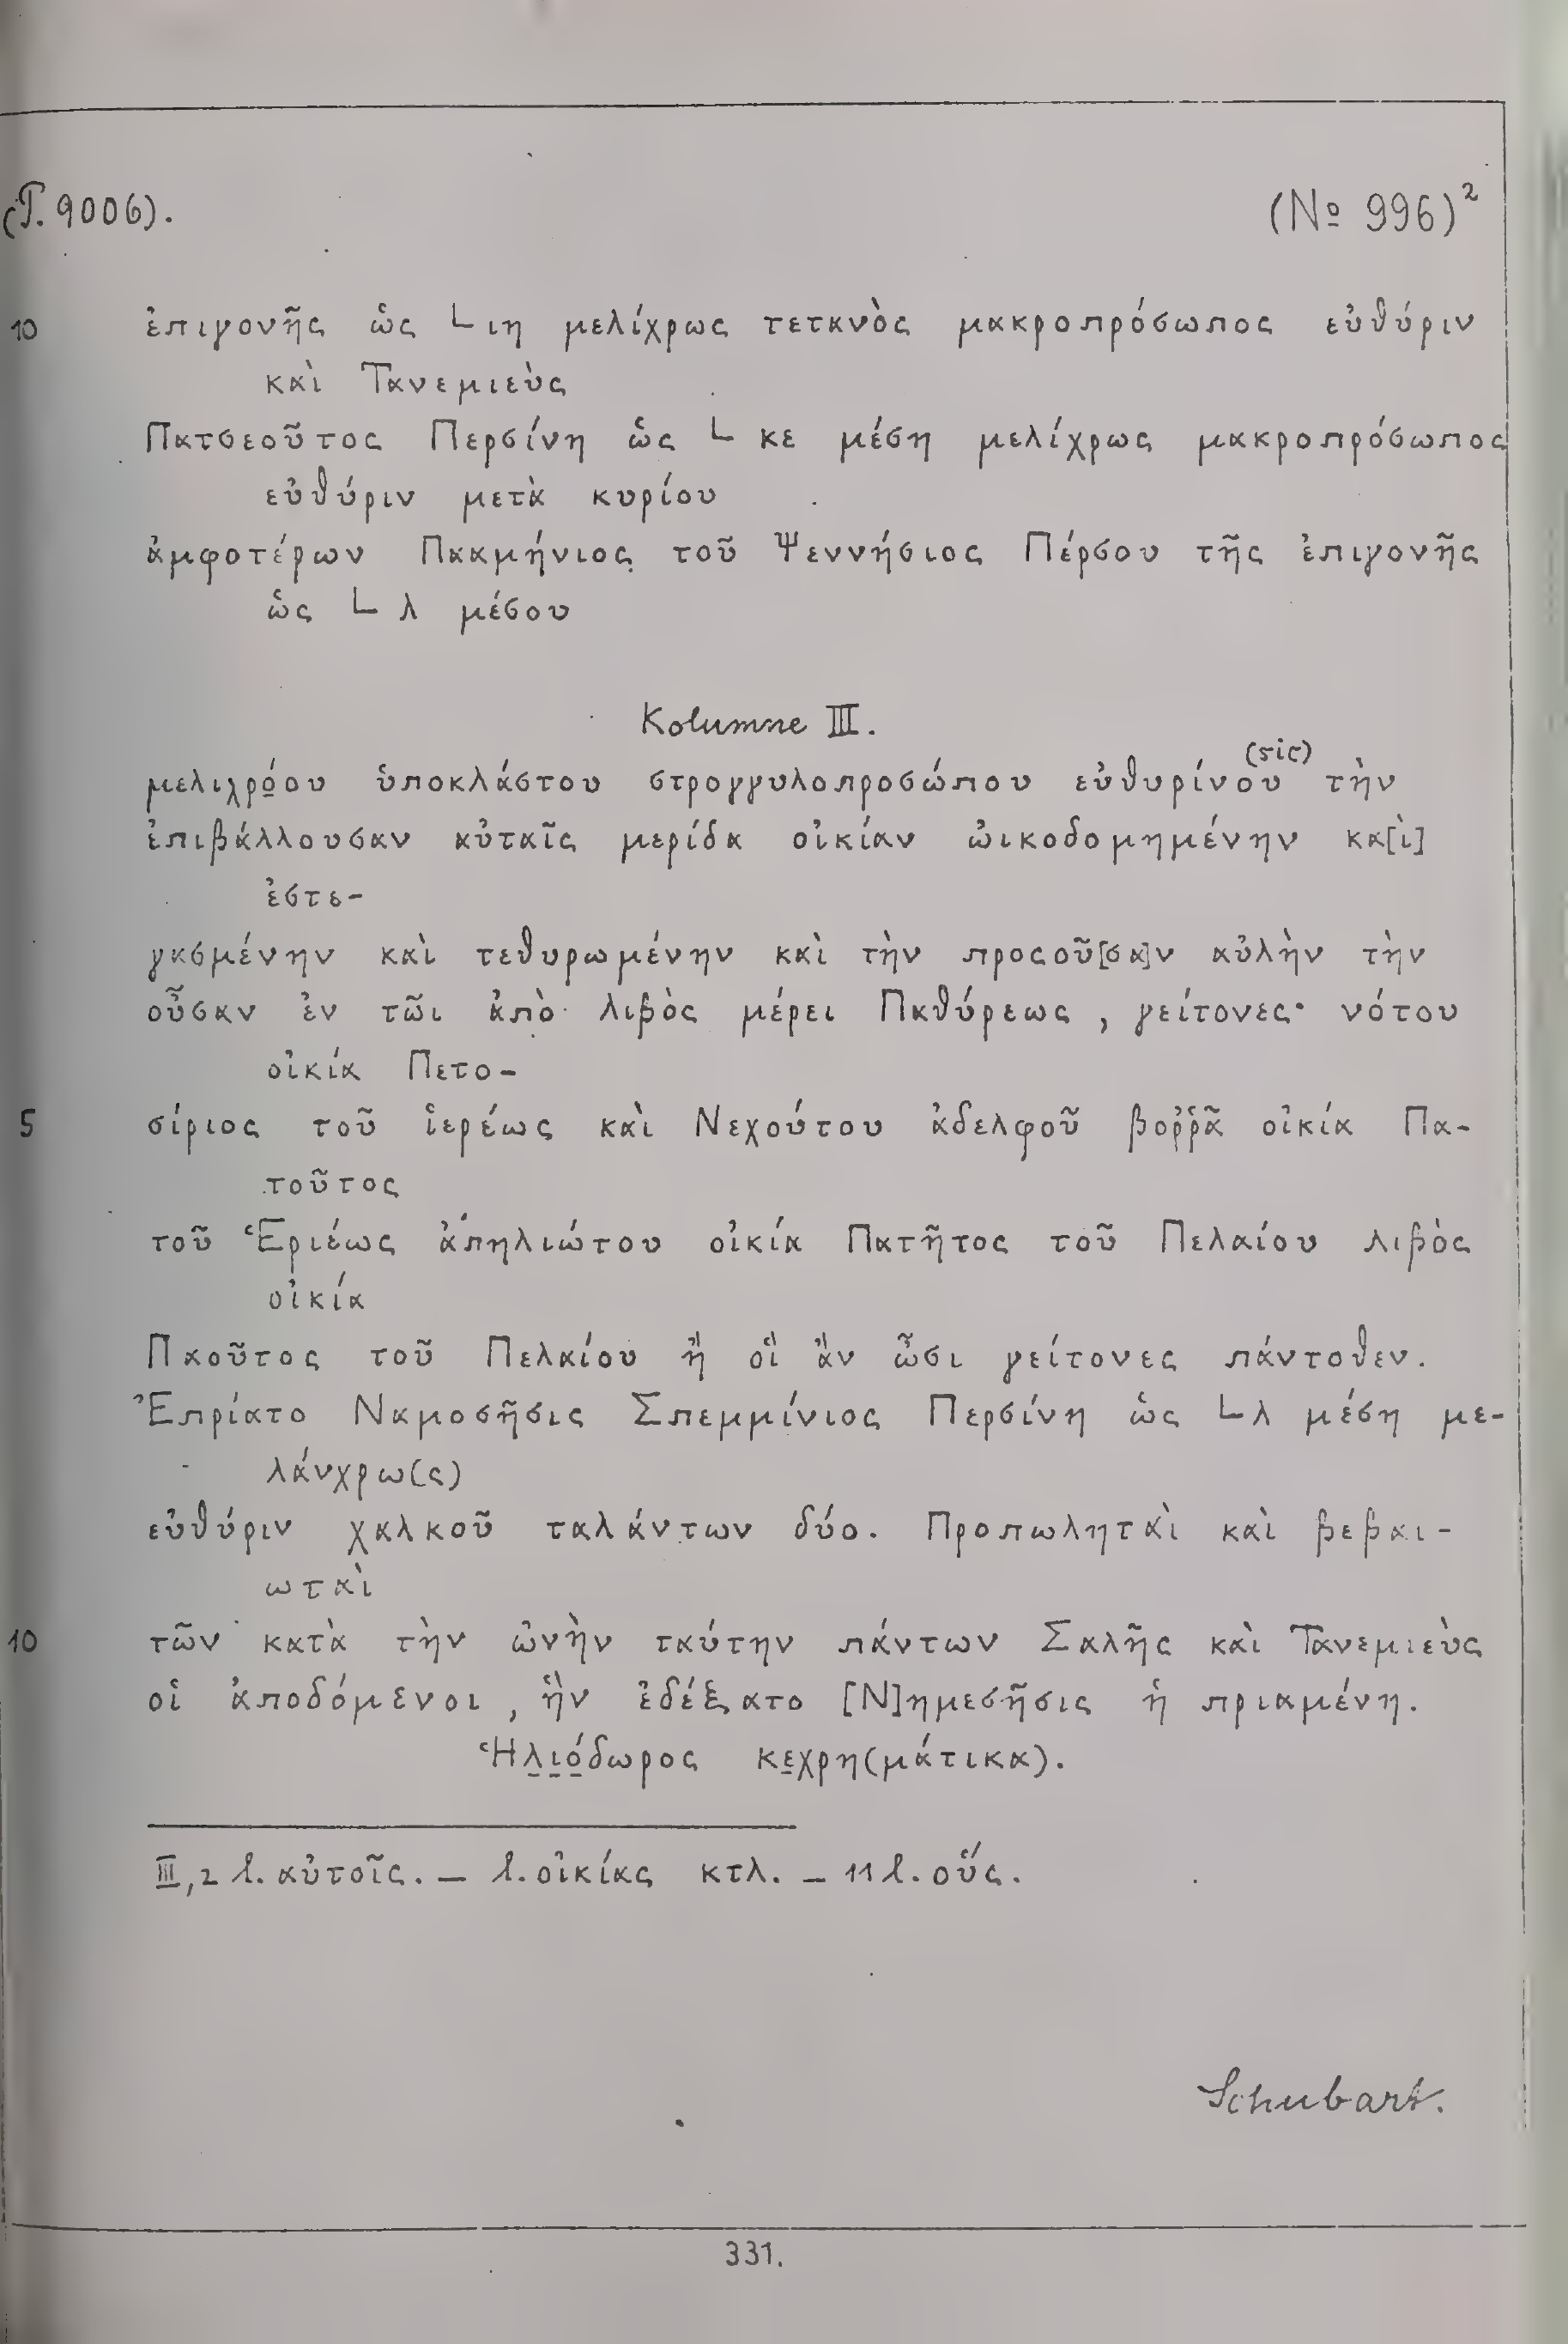 (P. 9006). (No 996)²
10 ἐπιγονῆς ὡς ∟ιη μελίχρως τετανὸς μακροπρόσωπος εὐθύριν
καὶ Τανεμιεὺς
Πατσεοῦτος Περσίνη ὡς ∟ κε μέση μελίχρως μακροπρόσωπος
εὐθύριν μετὰ κυρίου
ἀμφοτέρων Πακμήνιος τοῦ Ψεννήσιος Πέρσου τῆς ἐπιγονῆς
ὡς ∟ λ μέσου
Kolumne III.
μελιχρ̣ό̣ου ὑποκλάστου στρογγυλοπροσώπου εὐθυρίνου (sic) τὴν
ἐπιβάλλουσαν αὐταῖς μερίδα οἰκίαν ὠικοδομημένην κα[ὶ]
ἐστε-
γασμένην καὶ τεθυρωμένην καὶ τὴν προσοῦ[σα]ν αὐλὴν τὴν
οὖσαν ἐν τῶι ἀπὸ λιβὸς μέρει Παθύρεως, γείτονες· νότου
οἰκία Πετο-
5 σίριος τοῦ ἱερέως καὶ Νεχούτου ἀδελφοῦ βοῤῥᾶ οἰκία Πα-
τοῦτος
τοῦ Ἑριέως ἀπηλιώτου οἰκία Πατῆτος τοῦ Πελαίου λιβὸς
οἰκία
Παοῦτος τοῦ Πελαίου ἢ οἳ ἂν ὦσι γείτονες πάντοθεν.
Ἐπρίατο Ναμοσῆσις Σπεμμίνιος Περσίνη ὡς ∟λ μέση με-
λάνχρω(ς)
εὐθύριν χαλκοῦ ταλάντων δύο. Προπωληταὶ καὶ βεβαι-
ωταὶ
10 τῶν κατὰ τὴν ὠνὴν ταύτην πάντων Σαλῆς καὶ Τανεμιεὺς
οἱ ἀποδόμενοι, ἣν ἐδέξατο [Ν]ημεσῆσις ἡ πριαμένη.
Ἡλ̣ι̣ό̣δωρος κε̣χρη(μάτικα).
III, 2 l. αὐτοῖς. – l. οἰκίας κτλ. – 11 l. οὕς.
Schubart.
331.